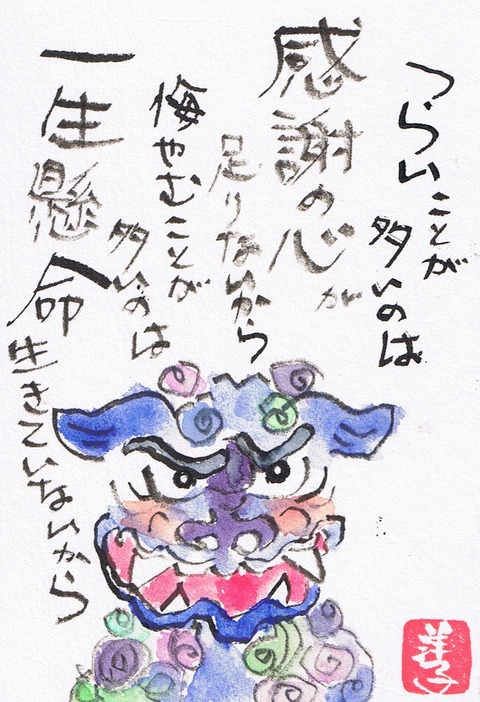 つらいことが
多いのは
感謝の心が
足りないから
悔やむことが
多いのは
一生懸命
生きていないから